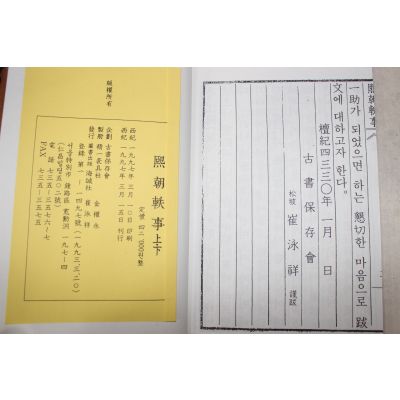 熙朝軼事
一助가 되었으면 하는 懇切한 마음으로 跋
文에 대하고자 한다.
檀紀 四三三○年 一月 日
古書保存會
松坡 崔泳祥 謹跋
版權所有
西紀 一九九七年 三月 一○日 印刷
西紀 一九九七年 三月 一五日 刊行
熙朝軼事 上下
定價 四二,000원整
企劃 古書保存會
製册 精一表具社 金權永
發行 叢書出版 海誠社 崔泳祥
登錄 第一-一四九七號(一九九三.三.二○)
서울特別市 鍾路區 寬勳洞 一九七-四
電話 七三五-三五七六~七
FAX 七三五-三五七五